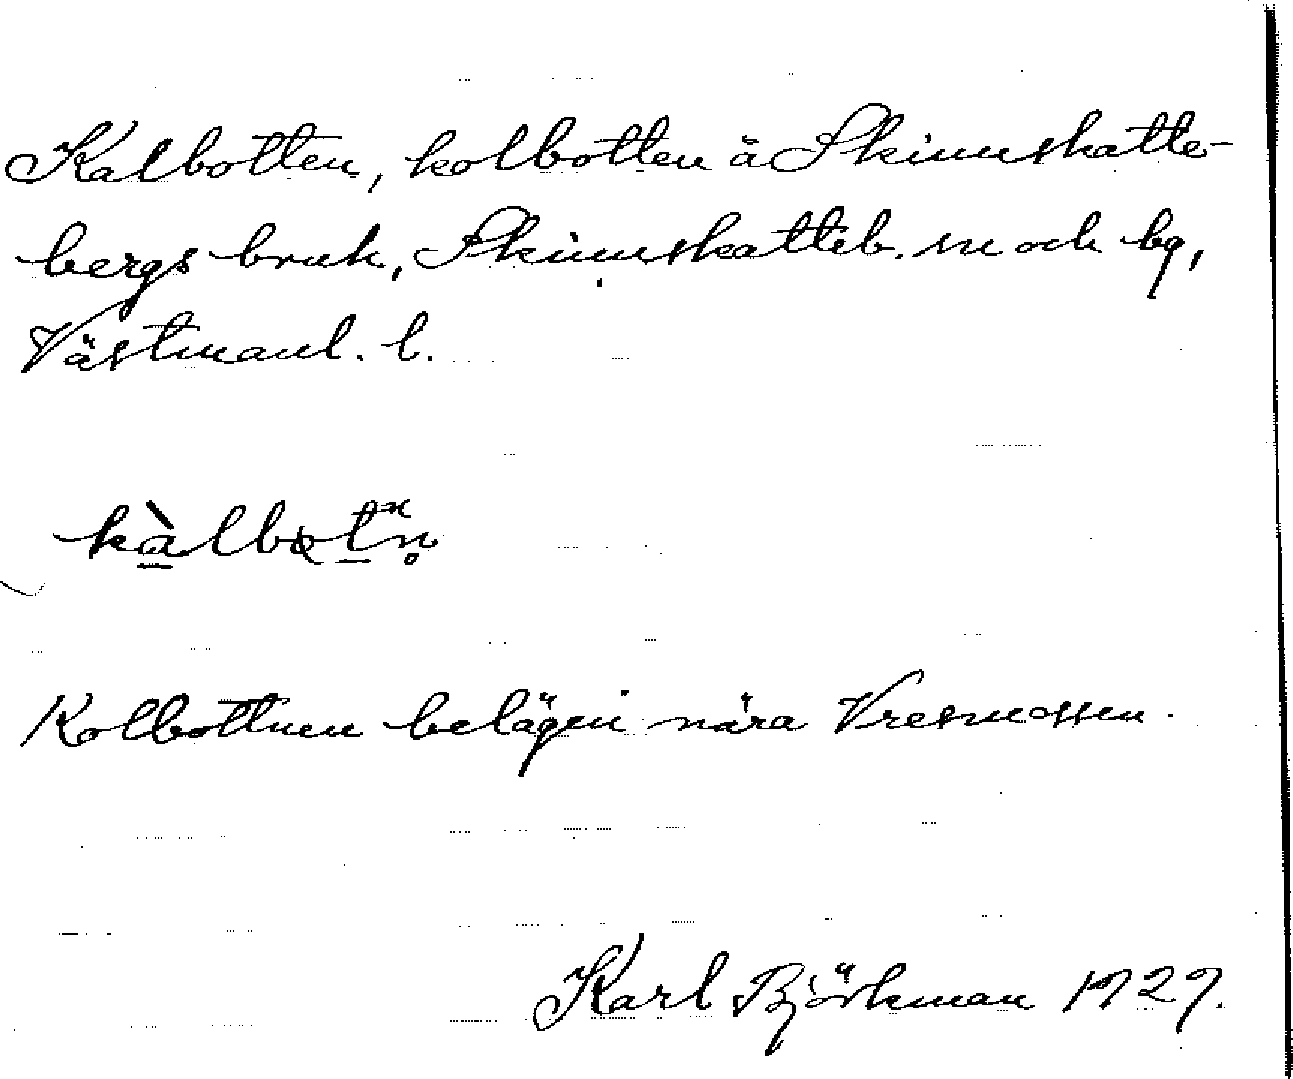 Kalbotten, kolbotten å Skinnskatte-
bergs bruk, Skinnskatteb. sn och bg,
Västmanl. l.
kàlbotn̥
Kolbottnen belägen nära Vresmossen.
Karl Björkman 1927.